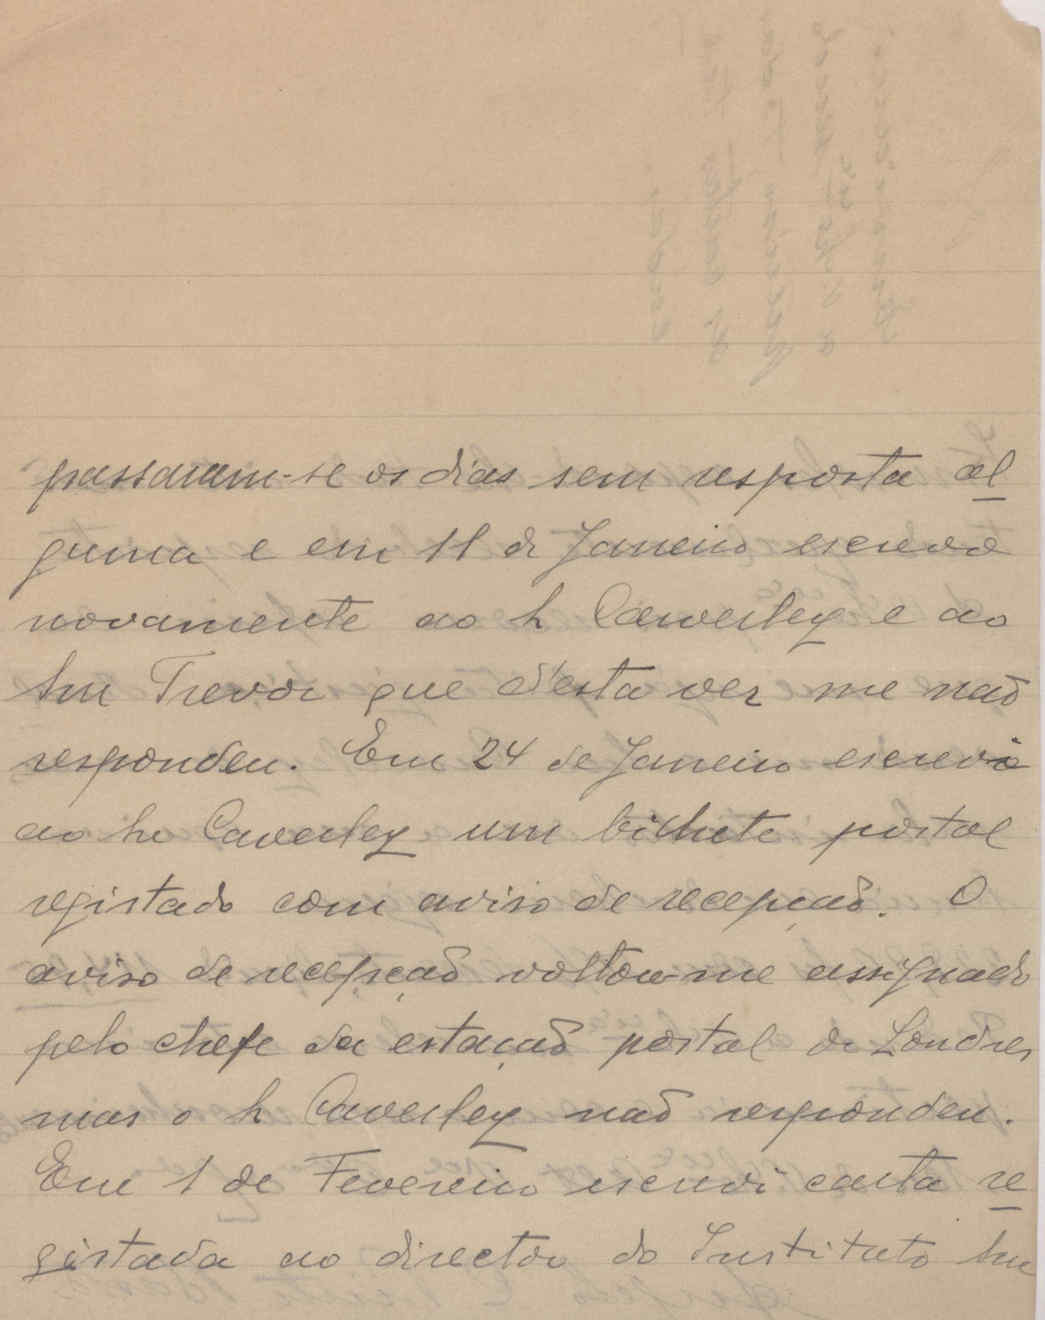 passaram-se os dias sem resposta al
guma e em 11 de Janeiro escrevo
novamente ao Sr Caverley e ao
Snr Trevor que d'esta vez me não
respondeu. Em 24 de Janeiro escrevi
ao Sr Caverley um bilhete postal
registado com aviso de recepção. O
aviso de recepção voltou-me assignado
pelo chefe da estação postal de Londres
mas o Sr Caverley não respondeu.
Em 1 de Fevereiro escrevi carta re
gistada ao director do Instituto Snr